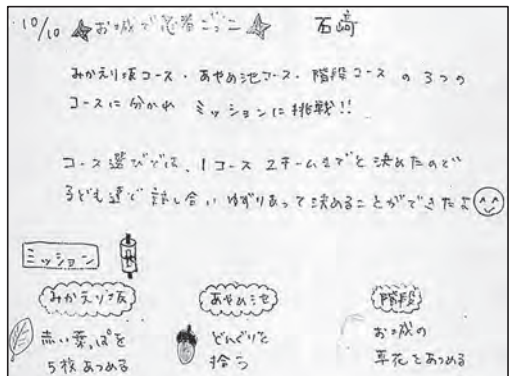 10/10 お城で忍者ごっこ 石崎
みかえり坂コース・あやめ池コース・階段コース の 3つの
コースに分かれ ミッションに挑戦!!
コース選びでは、1コース 2チームまでと決めたので
子ども達で話し合い ゆずりあって決めることができたよ
ミッション
みかえり坂
赤い葉っぱを
5枚あつめる
あやめ池
どんぐりを
拾う
階段
お城の
草花をあつめる